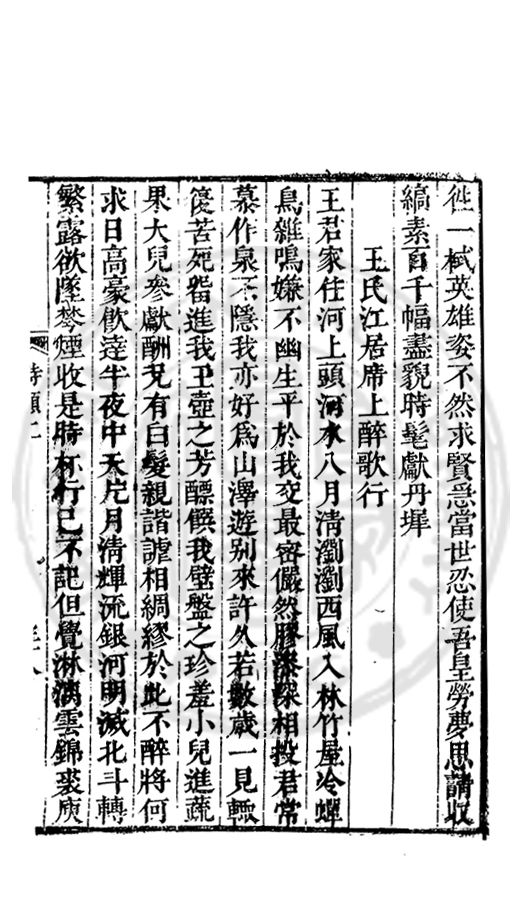 徃一栻英雄姿不然求賢爲當世忍使吾皇勞夢思請収
縞素百千幅盡貌時髦獻丹墀
王氏江居席上醉歌行
王君家住河上頭河水八月清瀏瀏西風入林竹屋冷蟬
鳥雜鳴嫌不幽生平於我交最密儼然膠漆深相投君常
慕作泉石隱我亦好爲山澤遊别來許久若數歳一見輙
復苦死畱進我玉壺之芳醥饌我璧盤之珍羞小兒進蔬
果大兒參獻酬兄有白髮親諧謔相綢繆於此不醉將何
求日高豪飲達半夜中天片月清輝流銀河明滅北斗轉
繁露欲墜棼煙收是時杯行已不記但覺淋漓雲錦裘庾
詩類二